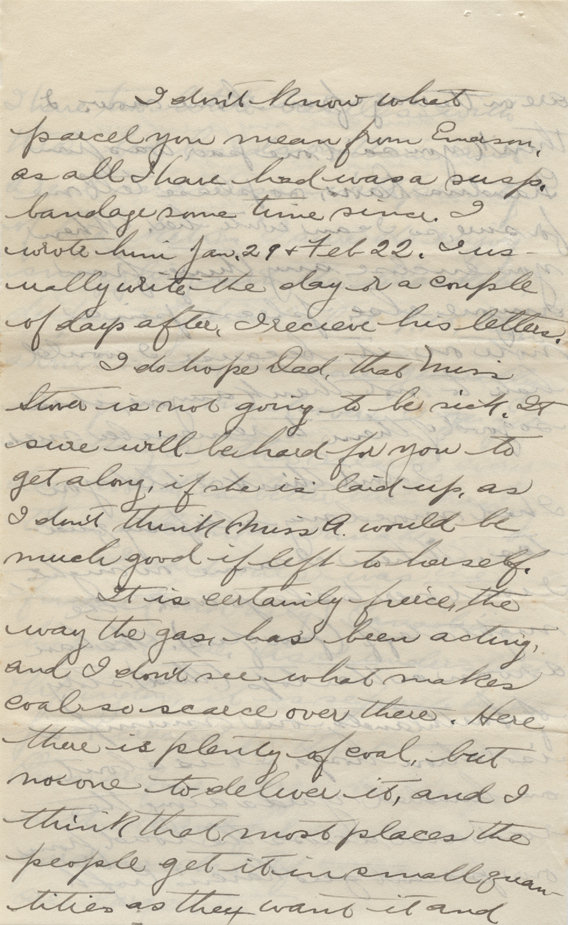 I don't know what
parcel you mean from Emerson,
as all I have had was a susp.
bandage some time since. I
wrote him Jan. 29 & Feb 22. I us-
ually write the day or a couple
of days after, I recieve his letters.
I do hope Dad, that Miss
Stover is not going to be sick. It
sure will be hard for you to
get along, if she is laid up, as
I don't think Miss A. would be
much good if left to herself.
It is certainly feirce, the
way the gas, has been acting,
and I don't see what makes
coal so scarce over there. Here
there is plenty of coal, but
no one to deliver it, and I
think that most places the
people get it in small quan-
tities as they want it and